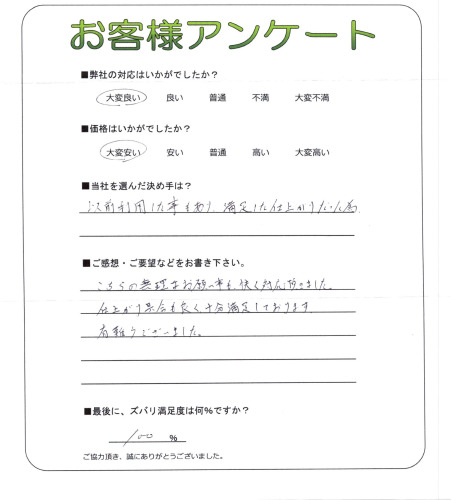 お客様アンケート
■弊社の対応はいかがでしたか？
大変良い 良い 普通 不満 大変不満
■価格はいかがでしたか？
大変安い 安い 普通 高い 大変高い
■当社を選んだ決め手は？
以前利用した事もあり 満足した仕上がりだった為
■ご感想・ご要望などをお書き下さい。
こちらの無理なお願い事も快く対応頂きました。
仕上がり具合も良く十分満足しております
有難うございました。
■最後に、ズバリ満足度は何％ですか？
100 ％
ご協力頂き、誠にありがとうございました。